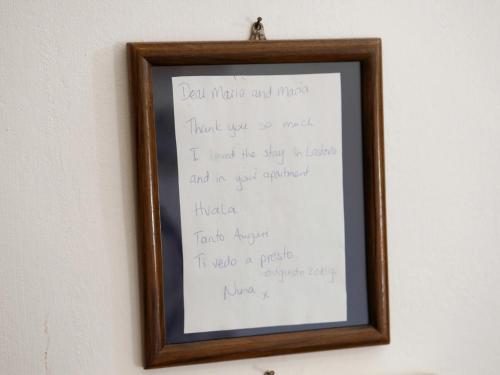 Dear Mario and Maria
Thank you so much
I loved the stay in Lastovo
and in your apartment
Hvala
Tanto Auguri
Ti vedo a presto
Nuna x